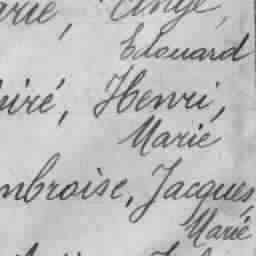 Ange,
Edouard
Henri,
Marie
Ambroise, Jacques,
Marie